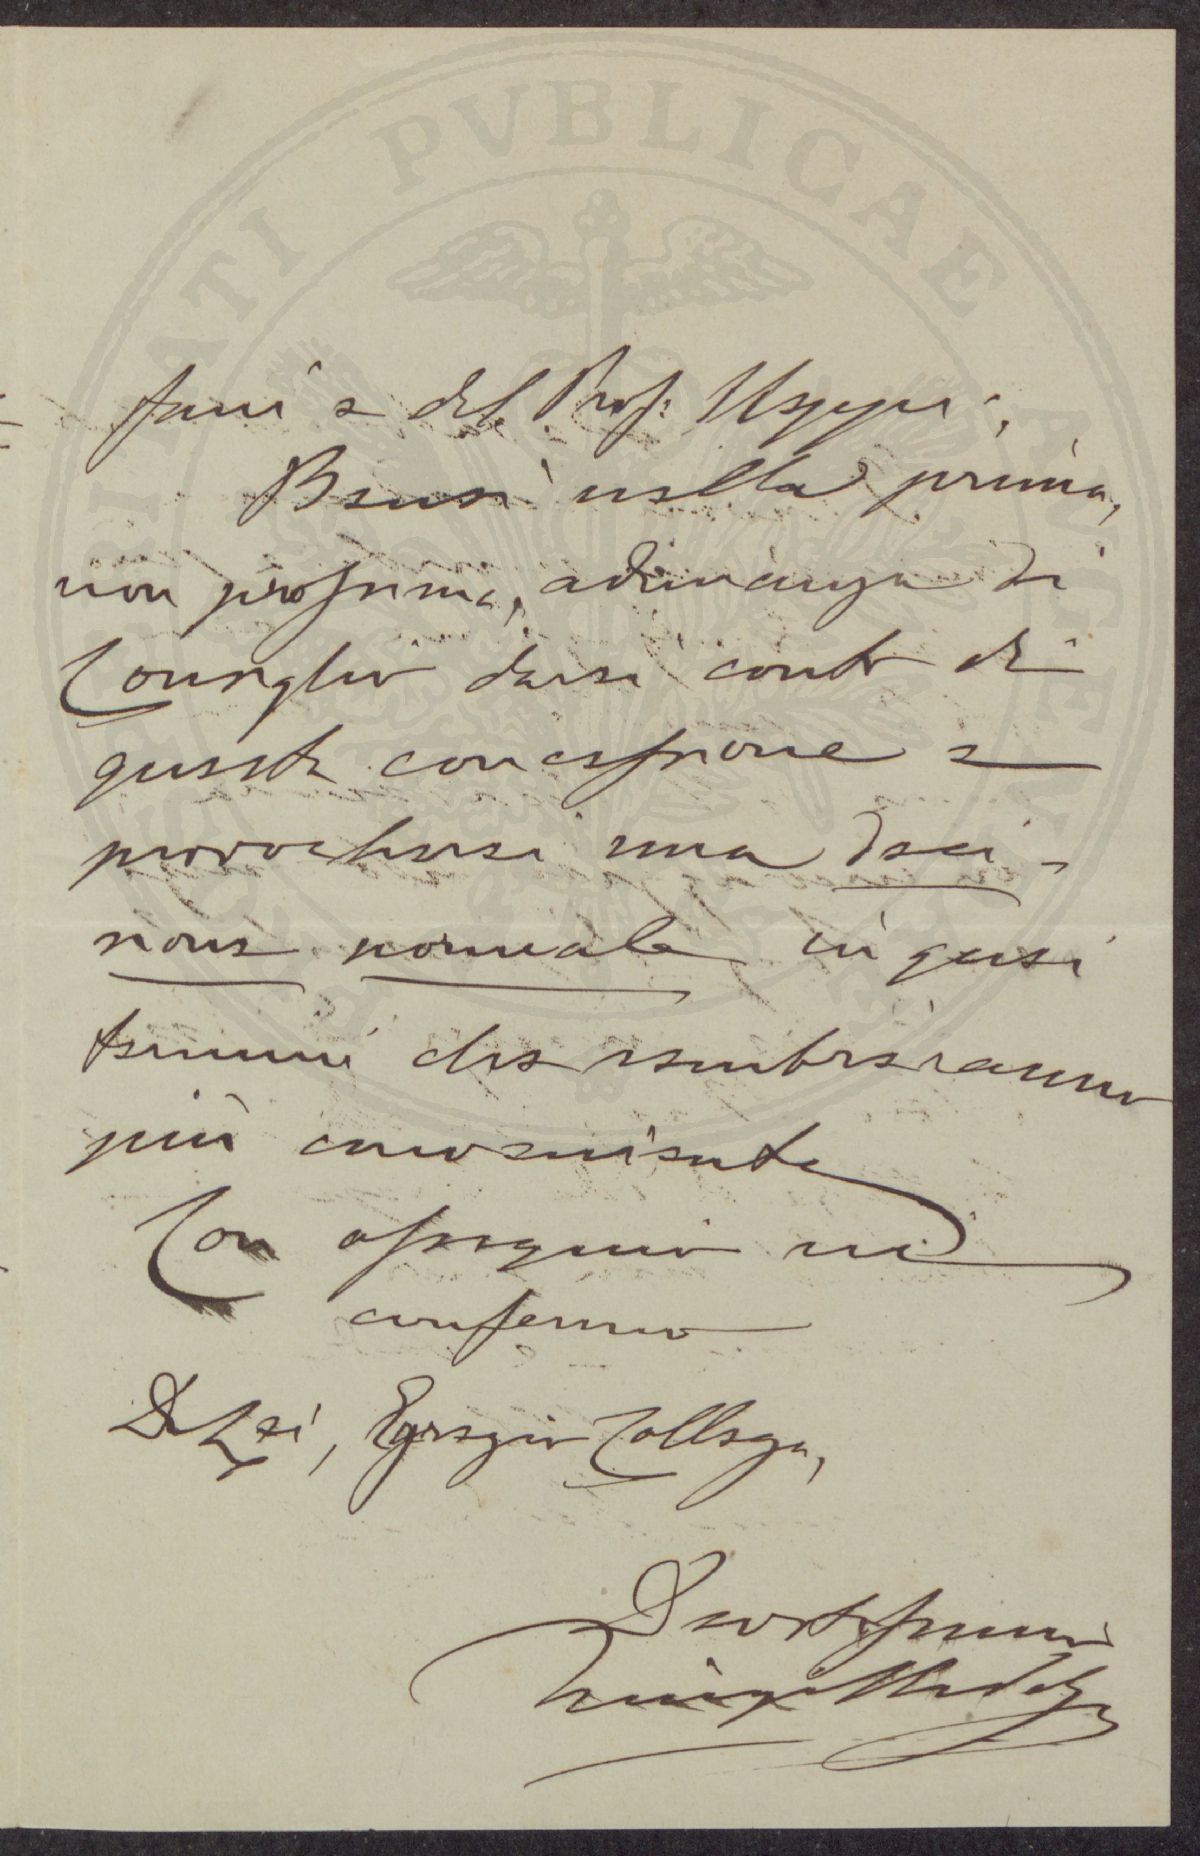 PVBLICAE
fani e del Prof. Uzzeni,
Bensì nella prima,
non prossima, adunanza di
Consiglio darsi conto di
questa concessione e
provocarsi una deci-
sione normale in quei
termini che sembreranno
più convenienti
Con ossequio mi
confermo
Di Lei, Egregio Collega,
Devotissimo
Luigi